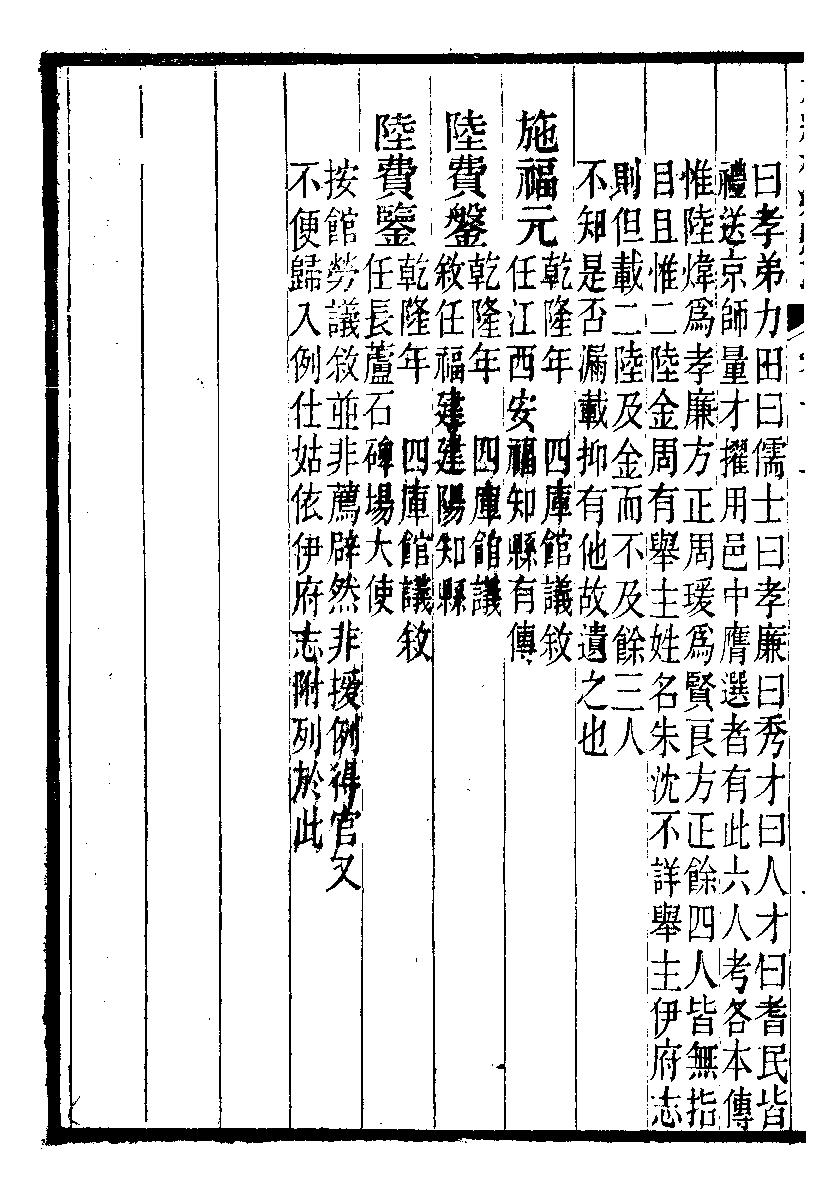 曰孝弟力田曰儒士曰孝廉曰秀才曰人才曰耆民皆
禮送京師量才擢用邑中膺選者有此六人考各本傳
惟陸煒爲孝廉方正周瑗爲賢良方正餘四人皆無指
目且惟二陸金周有舉主姓名朱沈不詳舉主伊府志
則但載二陸及金而不及餘三人
不知是否漏載抑有他故遺之也
施福元
乾隆年　四庫館議敘
任江西安福知縣有傳
陸費鎜
乾隆年　四庫館議
敘任福建建陽知縣
陸費鑒
乾隆年　四庫館議敘
任長蘆石碑場大使
按館勞議敘並非薦辟然非援例得官又
不便歸入例仕姑依伊府志附列於此